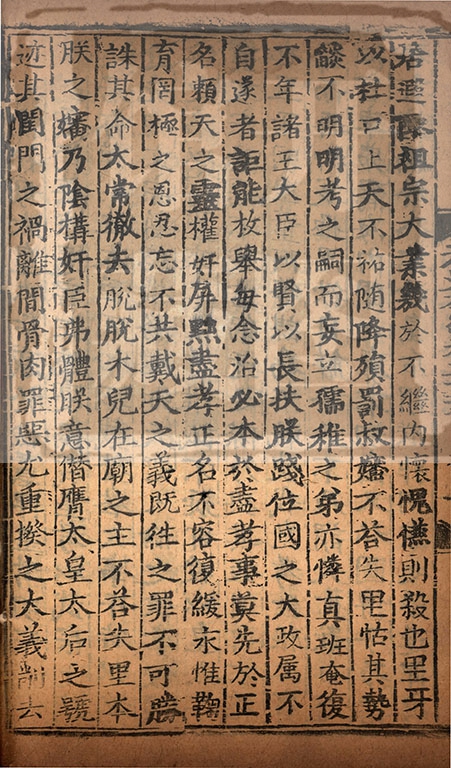 祖宗大業幾於不繼内懷愧慊則殺也里牙
以杜口上天不祐随降殞罰叔嬸不荅失里怙其勢
燄不明明考之嗣而妄立孺稚之弟亦憐真班奄復
不年諸王大臣以賢以長扶朕踐位國之大政属不
自遂者詎能枚舉每念治必本於盡孝事莫先於正
名賴天之靈權奸屏黜盡孝正名不容復緩永惟鞠
育罔極之恩忍忘不共戴天之義既徃之罪不可勝
誅其命太常徹去脫脫木兒在廟之主不荅失里本
朕之嬸乃陰構奸臣弗體朕意僭膺太皇太后之號
迹其閨門之禍離間骨肉罪惡尤重揆之大義削去